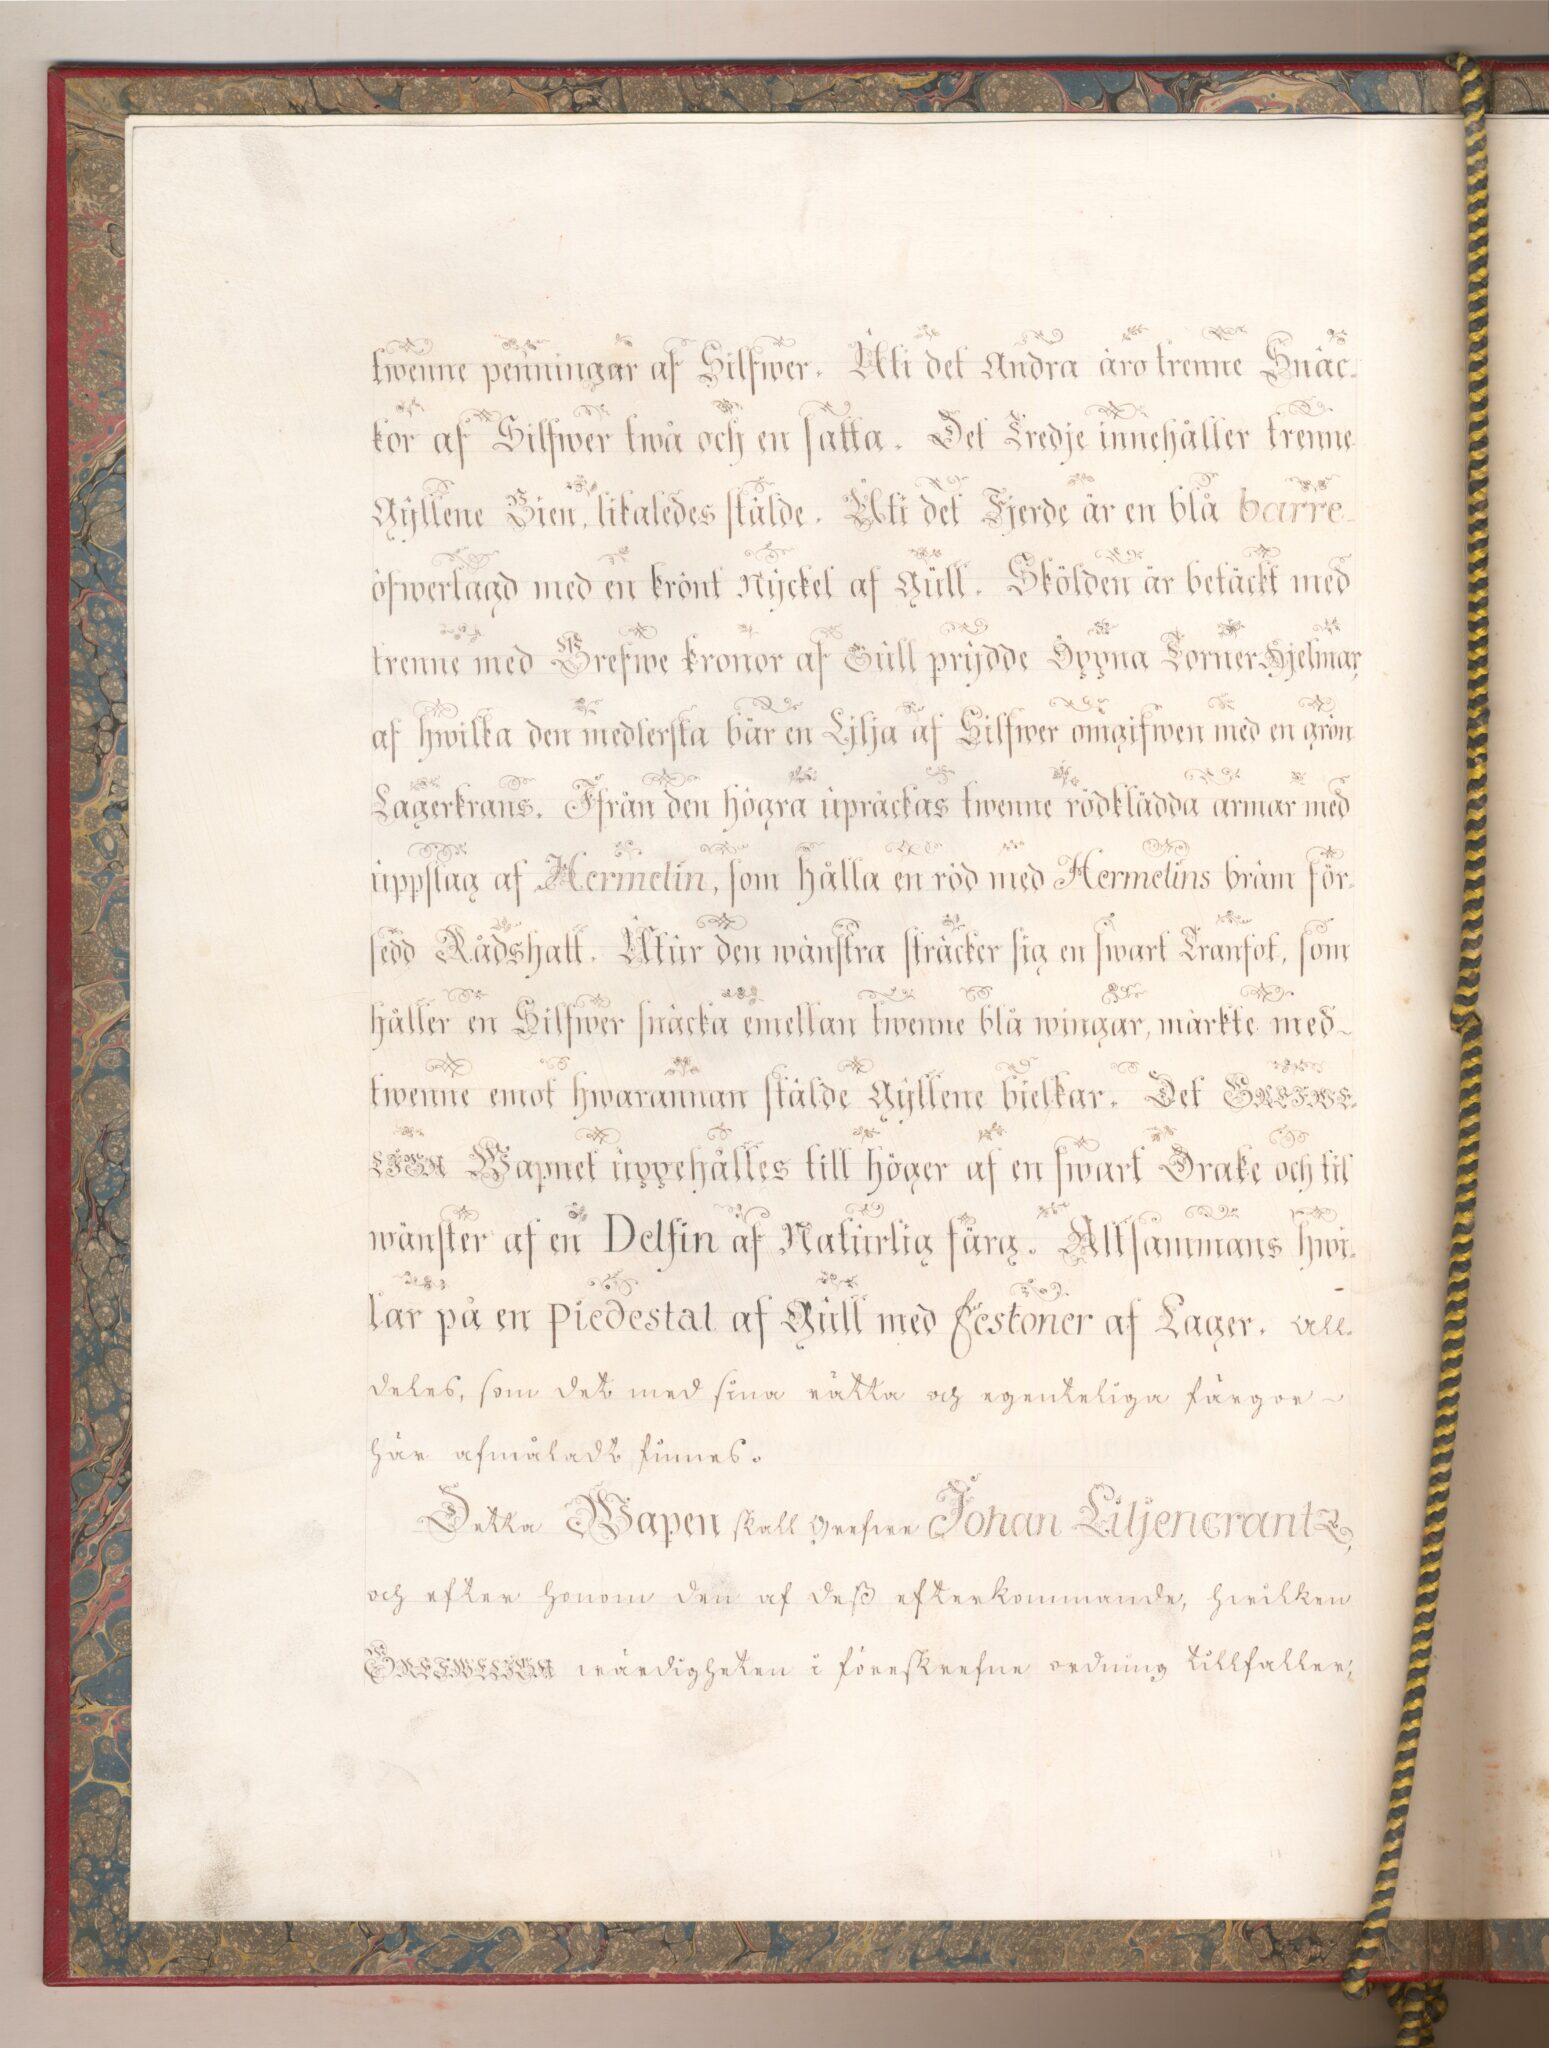 twenne penningar af Silfwer. Uti det Andra äro trenne Snäc-
kor af Silfwer twå och en satta. Det Tredje innehåller trenne
Gyllene Bien, likaledes stälde. Uti det Fjerde är en blå barre
öfwerlagd med en krönt Nyckel af Gull. Skölden är betäckt med
trenne med Grefwe kronor af Gull prydde Öppna Torner Hjelmar,
af hwilka den medlersta bär en Lilja af Silfwer omgifwen med en grön
Lagerkrans. Ifrån den högra upräckas twenne rödklädda armar med
uppslag af Hermelin, som hålla en röd med Hermelins bräm för-
sedd Rådshatt. Utur den wänstra sträcker sig en swart Tranfot, som
håller en Silfwer snäcka emellan twenne blå wingar, märkte med
twenne emot hwarannan stälde Gyllene bielkar. Det GREFWE-
LIGA Wapnet uppehålles till höger af en swart Drake och til
wänster af en Delfin af Naturlig färg. Altsammans hwi-
lar på en Piedestal af Gull med Festoner af Lager. All-
deles, som det med sina rätta och egenteliga färgor
här afmåladt finnes.
Detta Wapen skall Grefwe Johan Liljencrantz,
och efter honom den af deß efterkommande, hwilken
GREFWELIGA wärdigheten i föreskrefne ordning tillfaller,